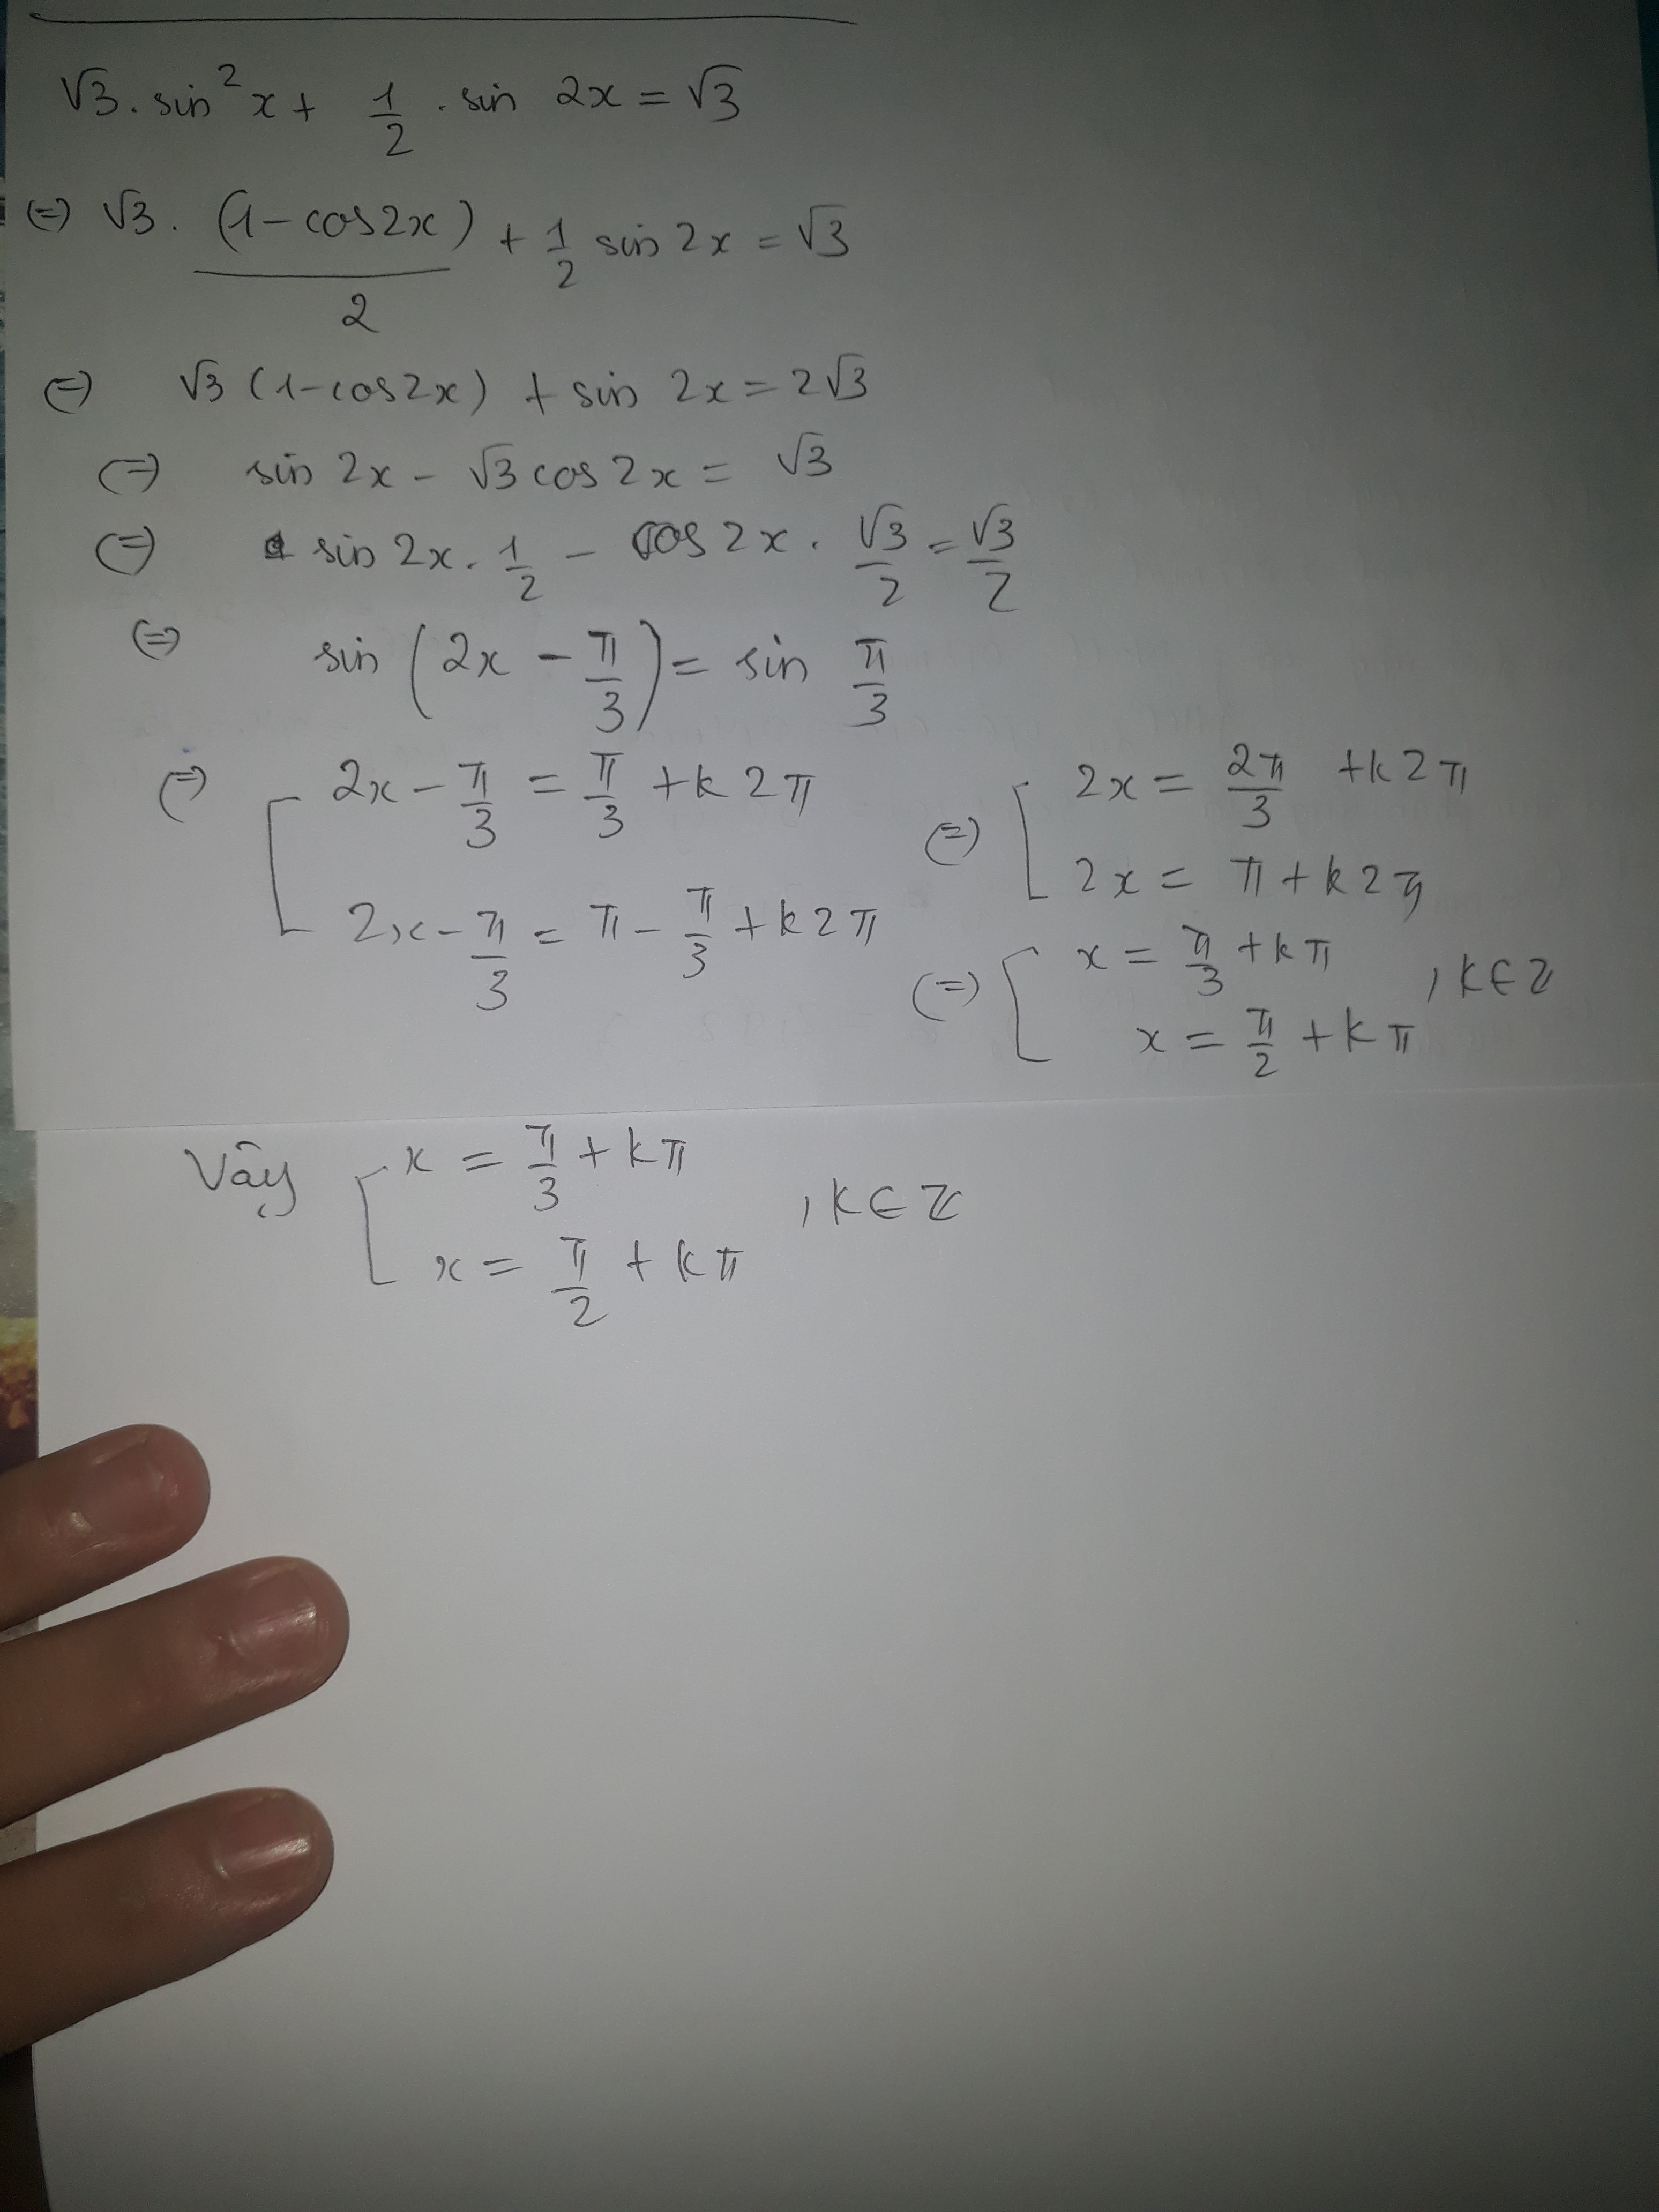 √3. sin² x + 1/2 . sin 2x = √3
(=) √3. (1-cos2x)/2 + 1/2 sin 2x = √3
(=) √3 (1-cos2x) + sin 2x = 2√3
(=) sin 2x - √3 cos 2x = √3
(=) sin 2x. 1/2 - cos 2x. √3/2 = √3/2
(=) sin (2x - π/3) = sin π/3
(=) [ 2x - π/3 = π/3 + k2π
2x - π/3 = π - π/3 + k2π
(=) [ 2x = 2π/3 + k2π
2x = π + k2π
(=) [ x = π/3 + kπ
x = π/2 + kπ , k∈Z
Vậy [ x = π/3 + kπ
x = π/2 + kπ , k∈Z